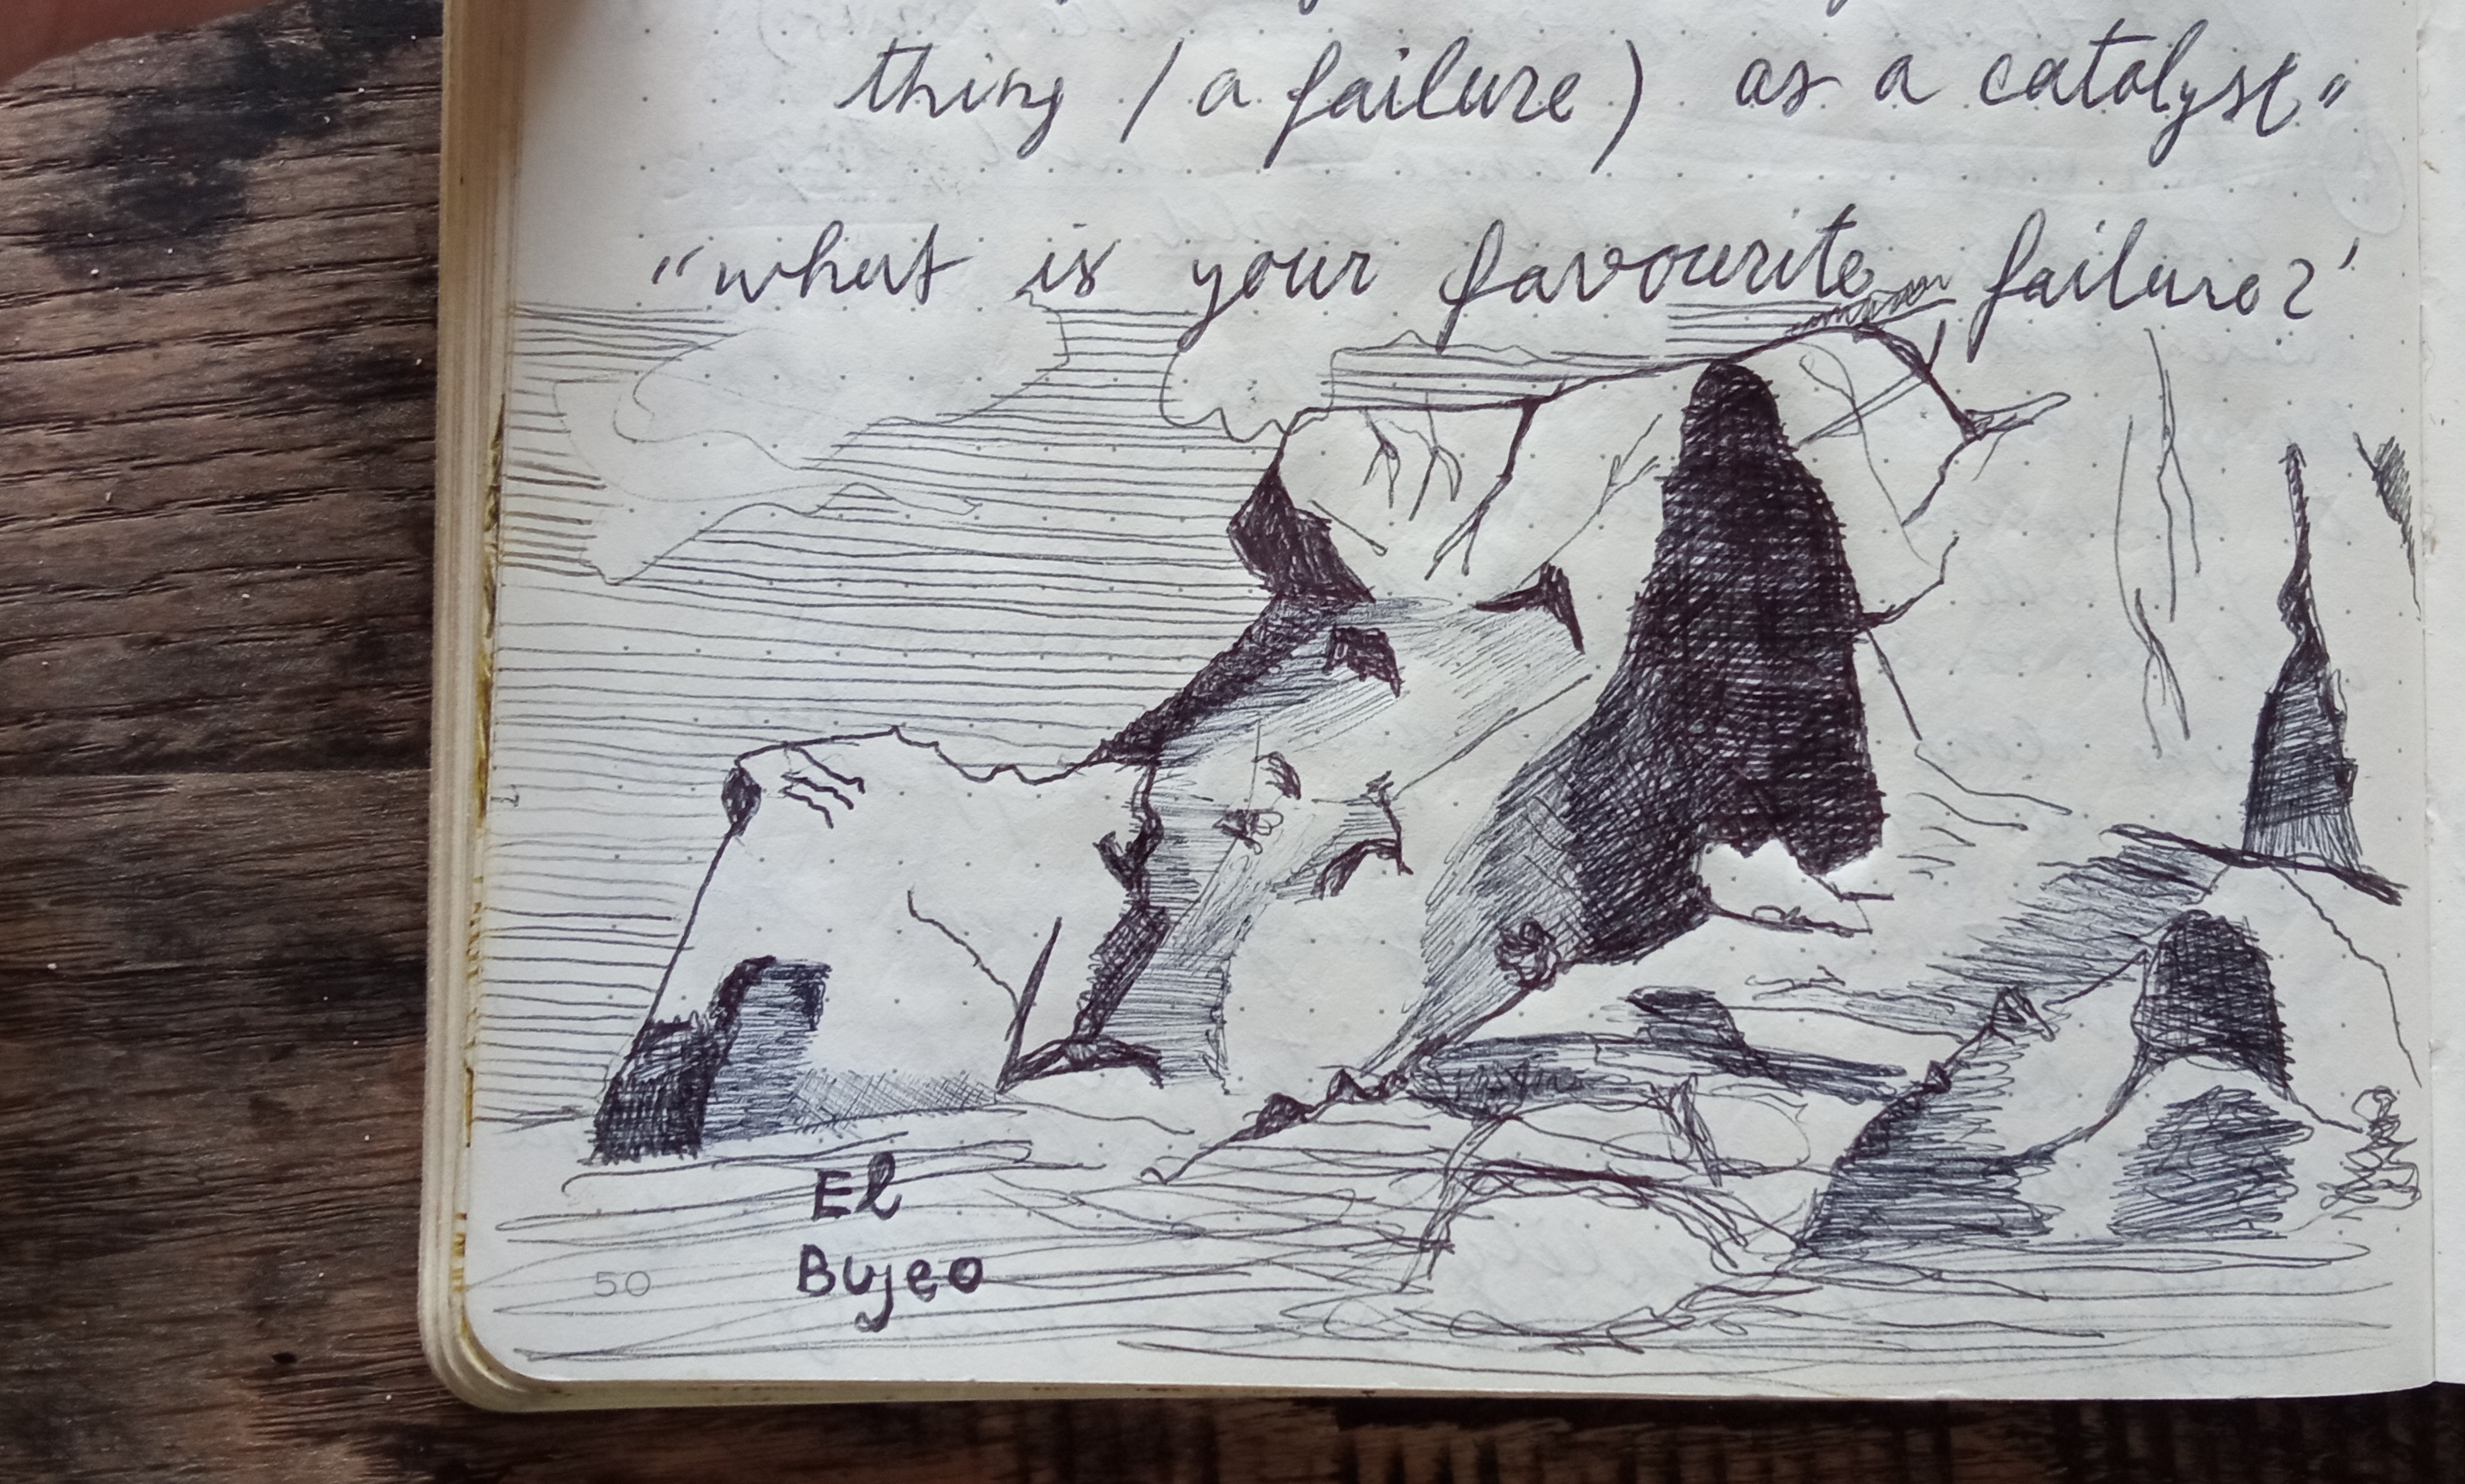 thing (a failure) as a catalyst"
"what is your favourite failure?'
El
Bujeo
50